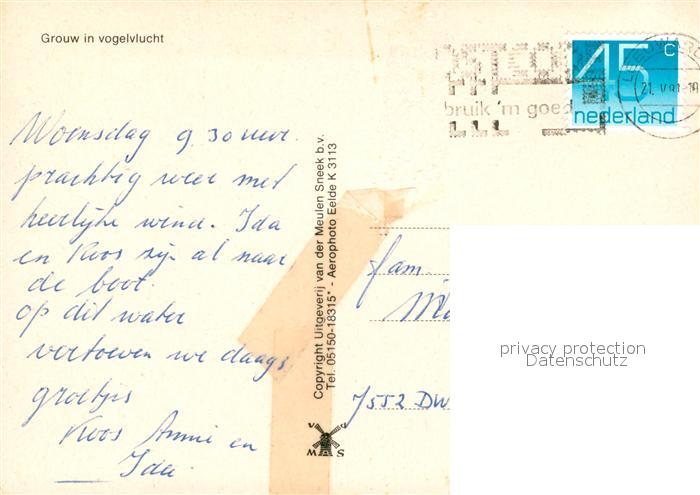 Grouw in vogelvlucht
Woensdag 9.30 uur.
prachtig weer met
heerlijke wind. Ida
en Koos zijn al naar
de boot.
op dit water
vertoeven we daags
groetjes
Koos Annie en
Ida
Copyright Uitgeverij van der Meulen Sneek b.v.
Tel. 05150-18315* - Aerophoto Eelde K 3113
V
M S
bruik 'm goed
45 c
nederland
21. V
fam.
7552 DW
privacy protection
Datenschutz